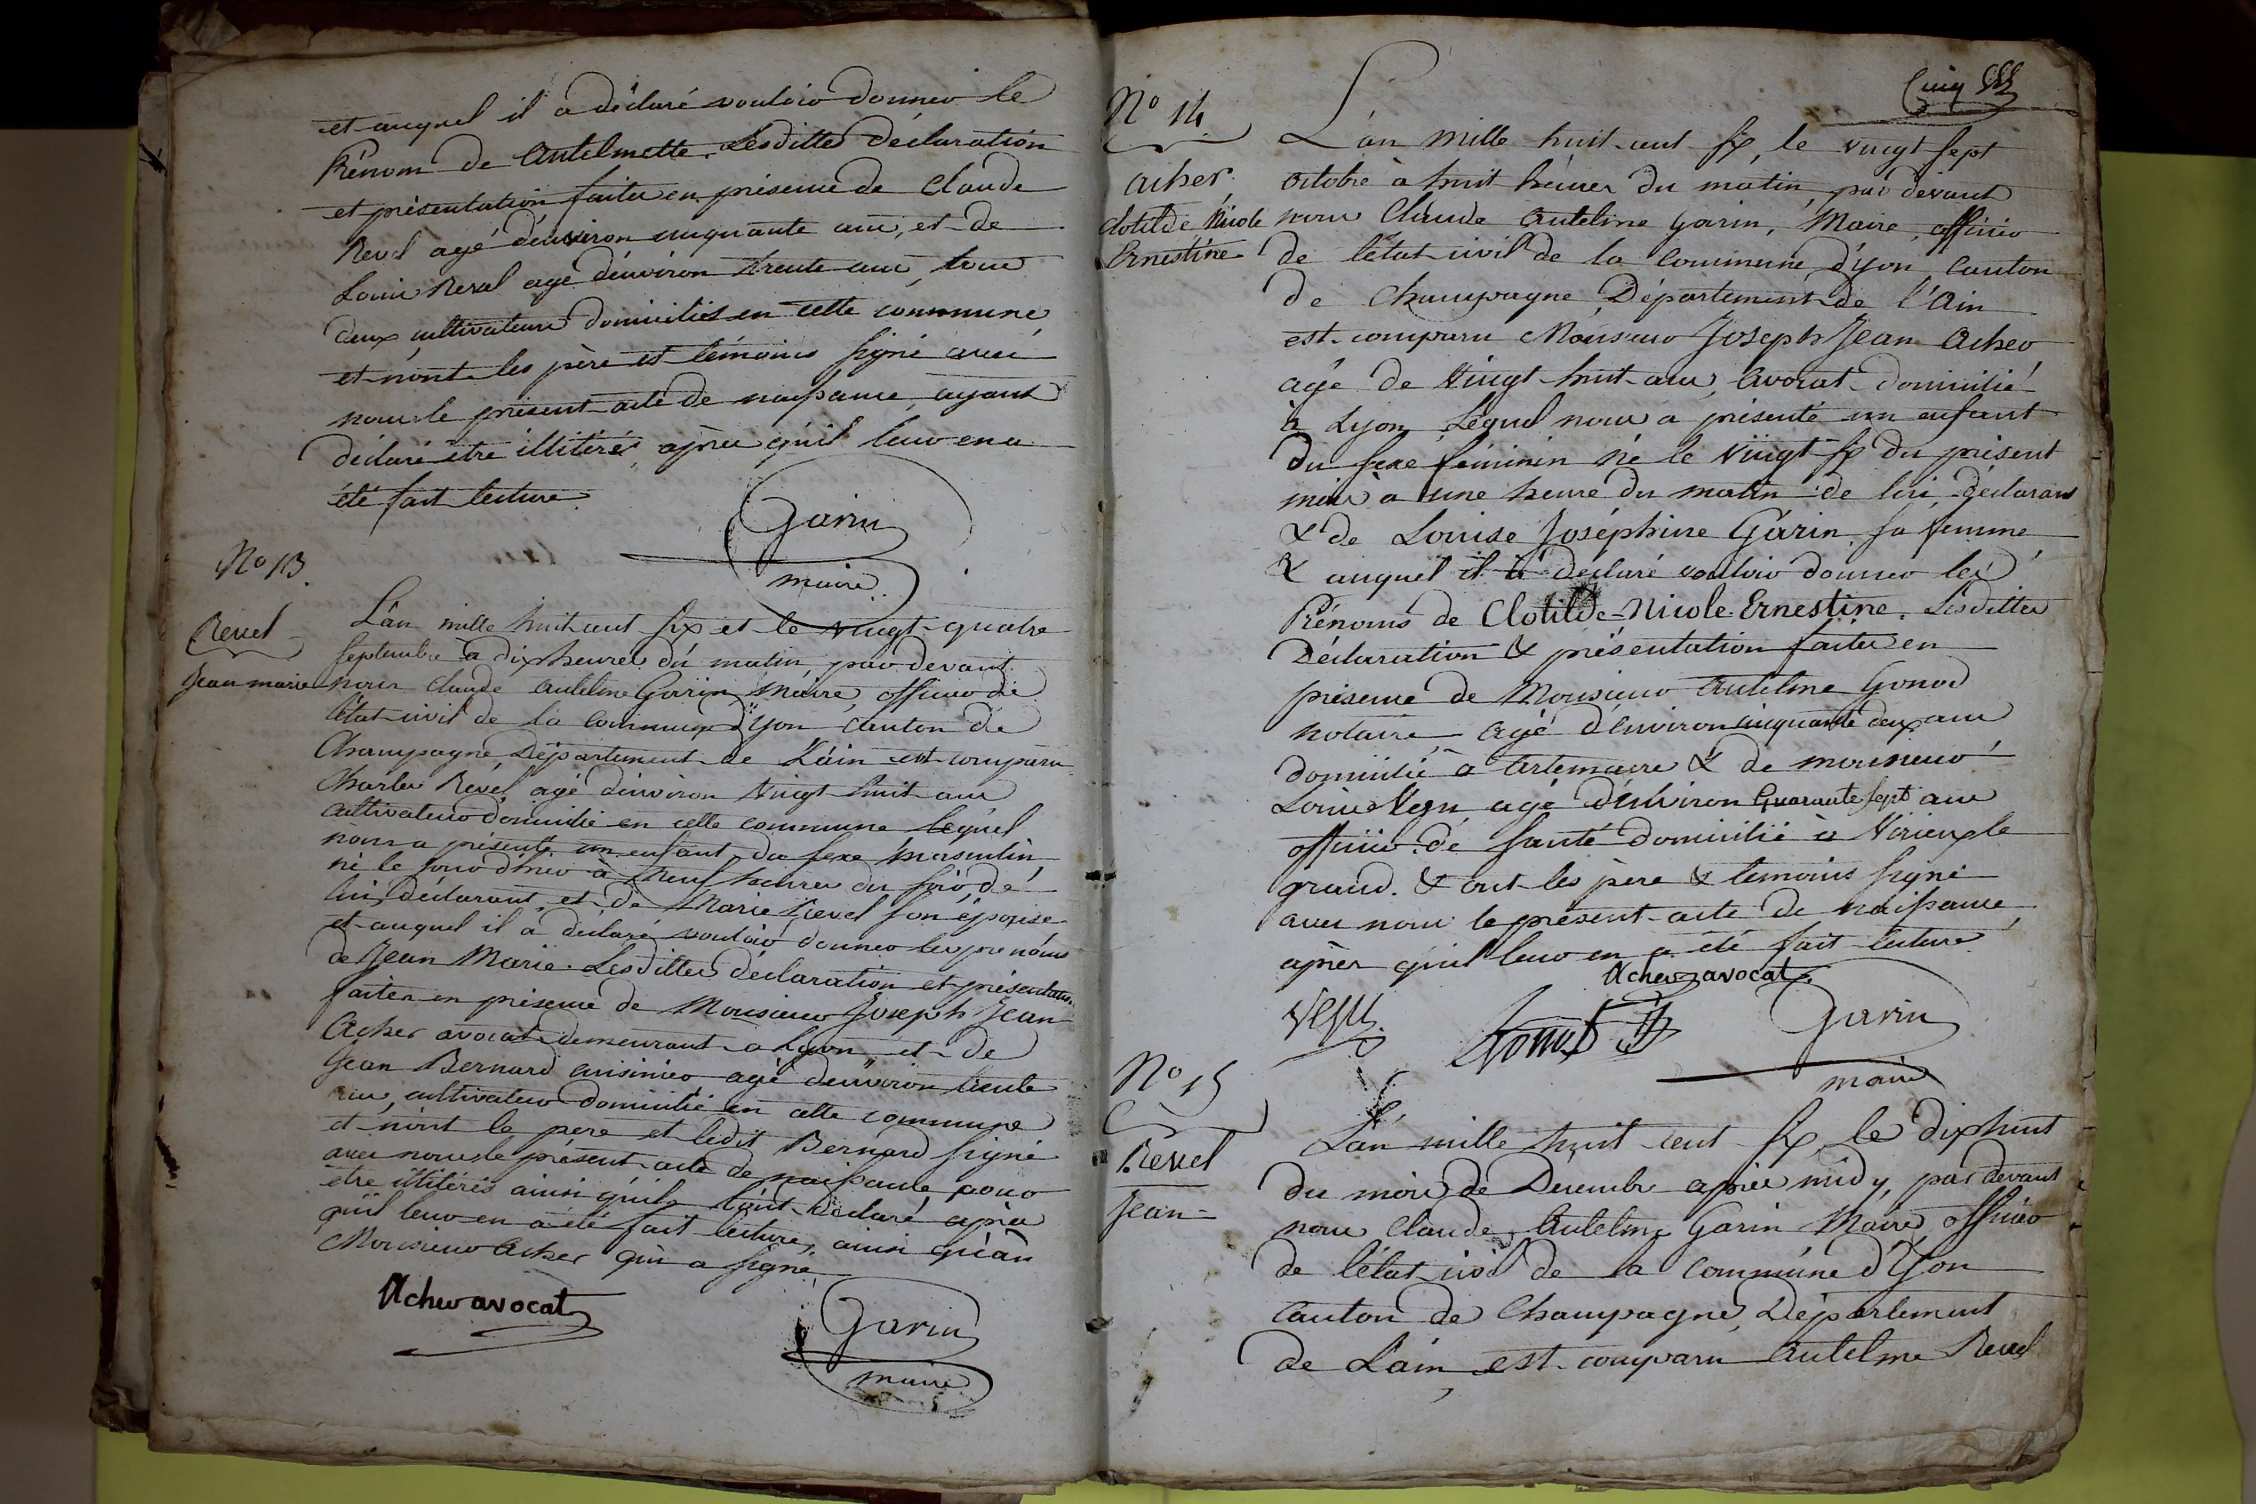 et auquel il a déclaré vouloir donner le
Prénom de Antelmette. Lesdittes déclaration
et présentation faites en présence de Claude
Revel agé d'environ cinquante ans, et de
Louis Reval agé d'environ trente ans, tous
deux cultivateurs domiciliés en cette commune,
et n'ont les père et témoins signé avec
nous le présent acte de naissance, ayant
déclaré être illitérés, après qu'il leur en a
été fait lecture.
Garin
maire
No 13.
Revel
Jean marie
L'an mille huit cent six et le vingt-quatre
Septembre à dix heures du matin, par devant
nous Claude Antelme Garin Maire, officier de
l'état-civil de la Commune d'yon Canton de
Champagne, Département de L'ain est comparu
Charles Revel agé d'environ vingt huit ans
cultivateur domicilié en cette commune lequel
nous a présenté un enfant du sexe masculin,
né le jour d'hier à neuf heures du soir, de
lui déclarant et de Marie Revel son épouse
et auquel il a déclaré vouloir donner les prénoms
de Jean Marie. Lesdittes déclaration et présentation
faites en présence de Monsieur Joseph Jean
Acher avocat demeurant a Lyon, et de
Jean Bernard cuisinier agé d'environ trente
ans, cultivateur domicilié en cette commune
et n'ont le pere et ledit Bernard signé
avec nous le présent acte de naissance pour
etre illitérés ainsi qu'ils l'ont déclaré, après
qu'il leur en a été fait lecture, ainsi qu'au
Monsieur Acher qui a signé
Acher avocat
Garin
maire
Cinq
No 14.
Acher
Clotilde Nicole
Ernestine
L'an mille huit-cent six, le vingt sept
octobre à huit heures du matin, par devant
nous Claude Antelme Garin, Maire, officier
de l'état-civil de la Commune d'yon Canton
de Champagne, Département de l'Ain
est comparu Monsieur Joseph Jean Acher
agé de vingt-huit-ans, Avocat domicilié
à Lyon, Lequel nous a présenté un enfant
du sexe féminin né le vingt-six du présent
mois à une heure du matin de lui déclarant
& de Louise Joséphine Garin sa femme
& auquel il a déclaré vouloir donner les
Prénoms de Clotilde-Nicole-Ernestine. Lesdittes
Déclaration & présentation faites en
présence de Monsieur Antelme Gonod
notaire agé d'environ cinquante deux ans
domicilié à Artemare & de monsieur
Louis Vegu, agé d'environ Quarante sept ans
officier de santé domicilié à Virieu le
grand. & ont les père & temoins signé
avec nous le présent acte de naissance,
après qu'il leur en a été fait lecture
Acher avocat
Vegu
Gonod
Garin
maire
No 15
Revel
Jean
L'an mille huit cent six, le dix huit
du mois de Decembre après midy, par devant
nous Claude Antelme Garin Maire, officier
de l'état-civil de la Commune d'Yon
Canton de Champagne, Département
de L'ain est comparu Antelme Revel